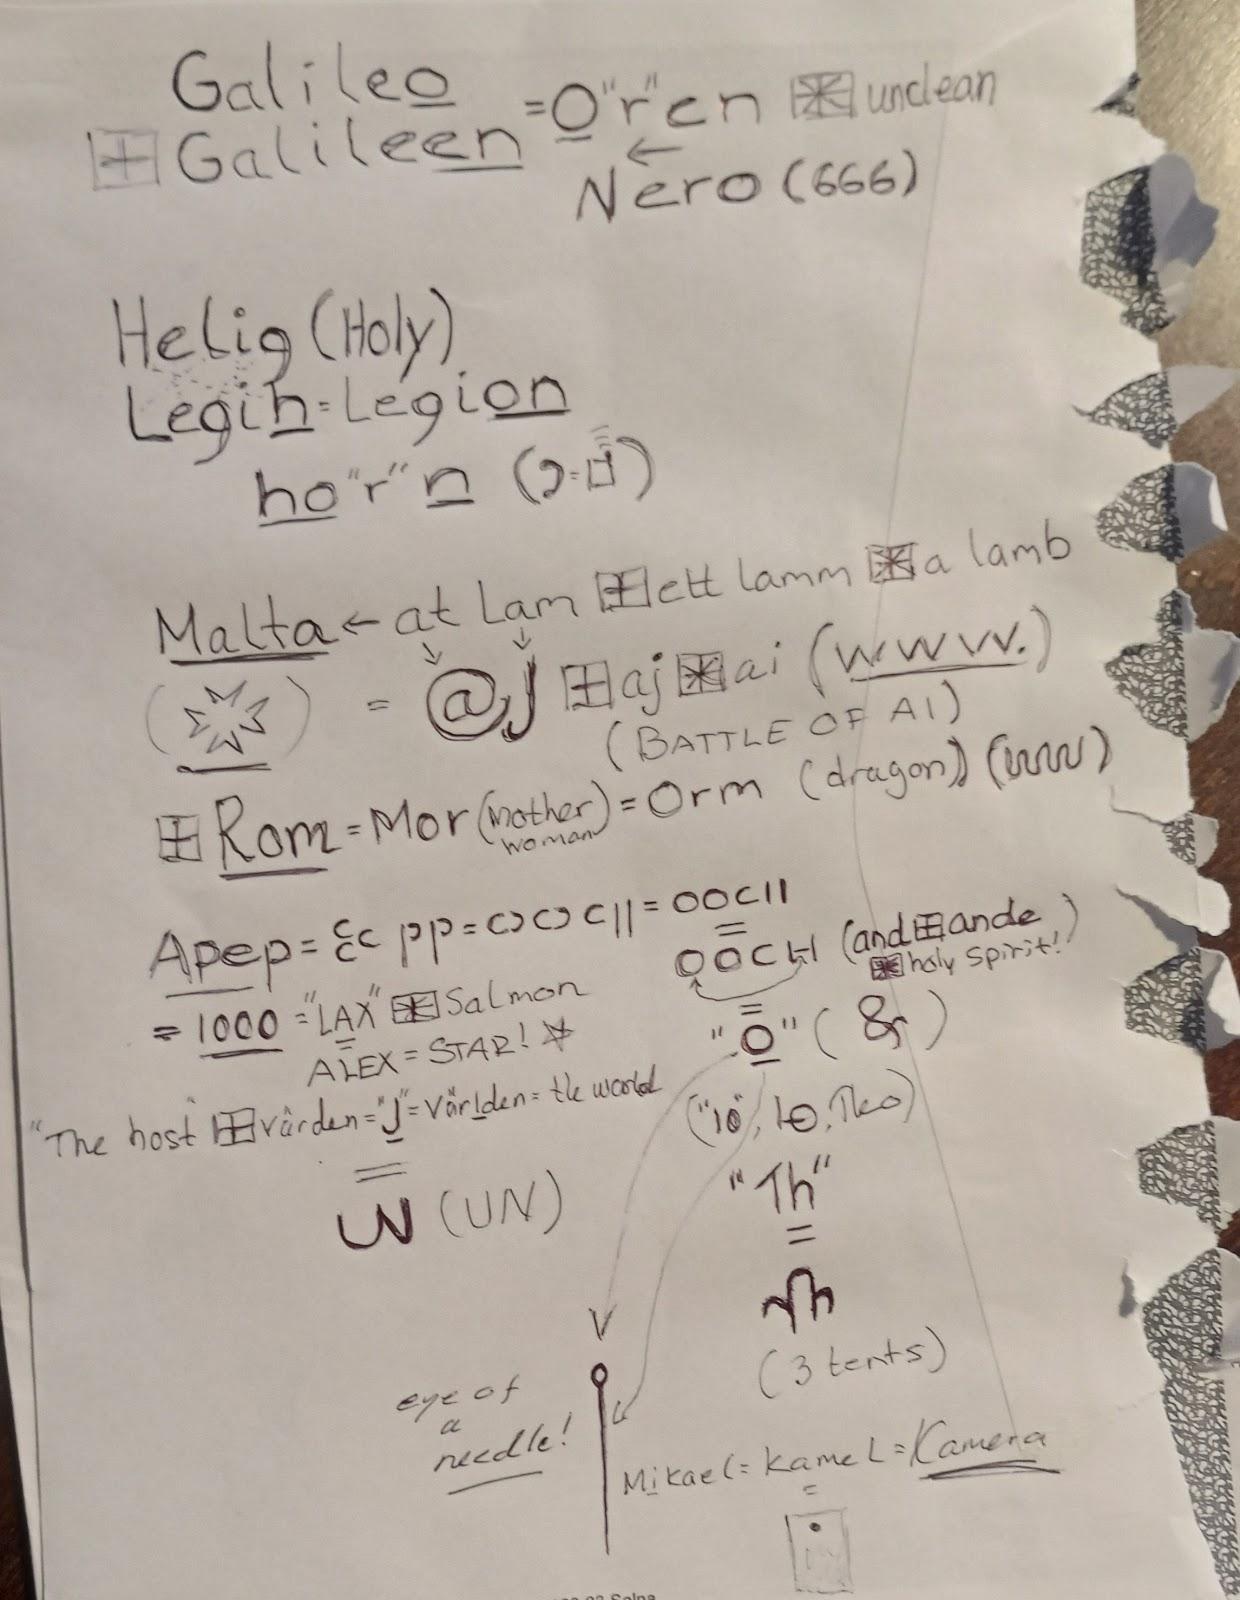 Galileo
Galileen = O"r"en unclean
← Nero (666)
Helig (Holy)
Legih = Legion
ho"r"n
Malta ← at Lam ett lamm a lamb
= @J aj ai (WWW.)
(BATTLE OF AI)
Rom = Mor (mother woman) = Orm (dragon)
Apep = pp = = OOCII
OOCH (and ande
holy spirit!)
= 1000 = "LAX" Salmon
ALEX = STAR!
"O" (&)
"The host värden = "J" = världen = the world
("10", Theo)
W (UN)
"Th"
=
(3 tents)
eye of
a
needle!
Mikael = Kamel = Kamera